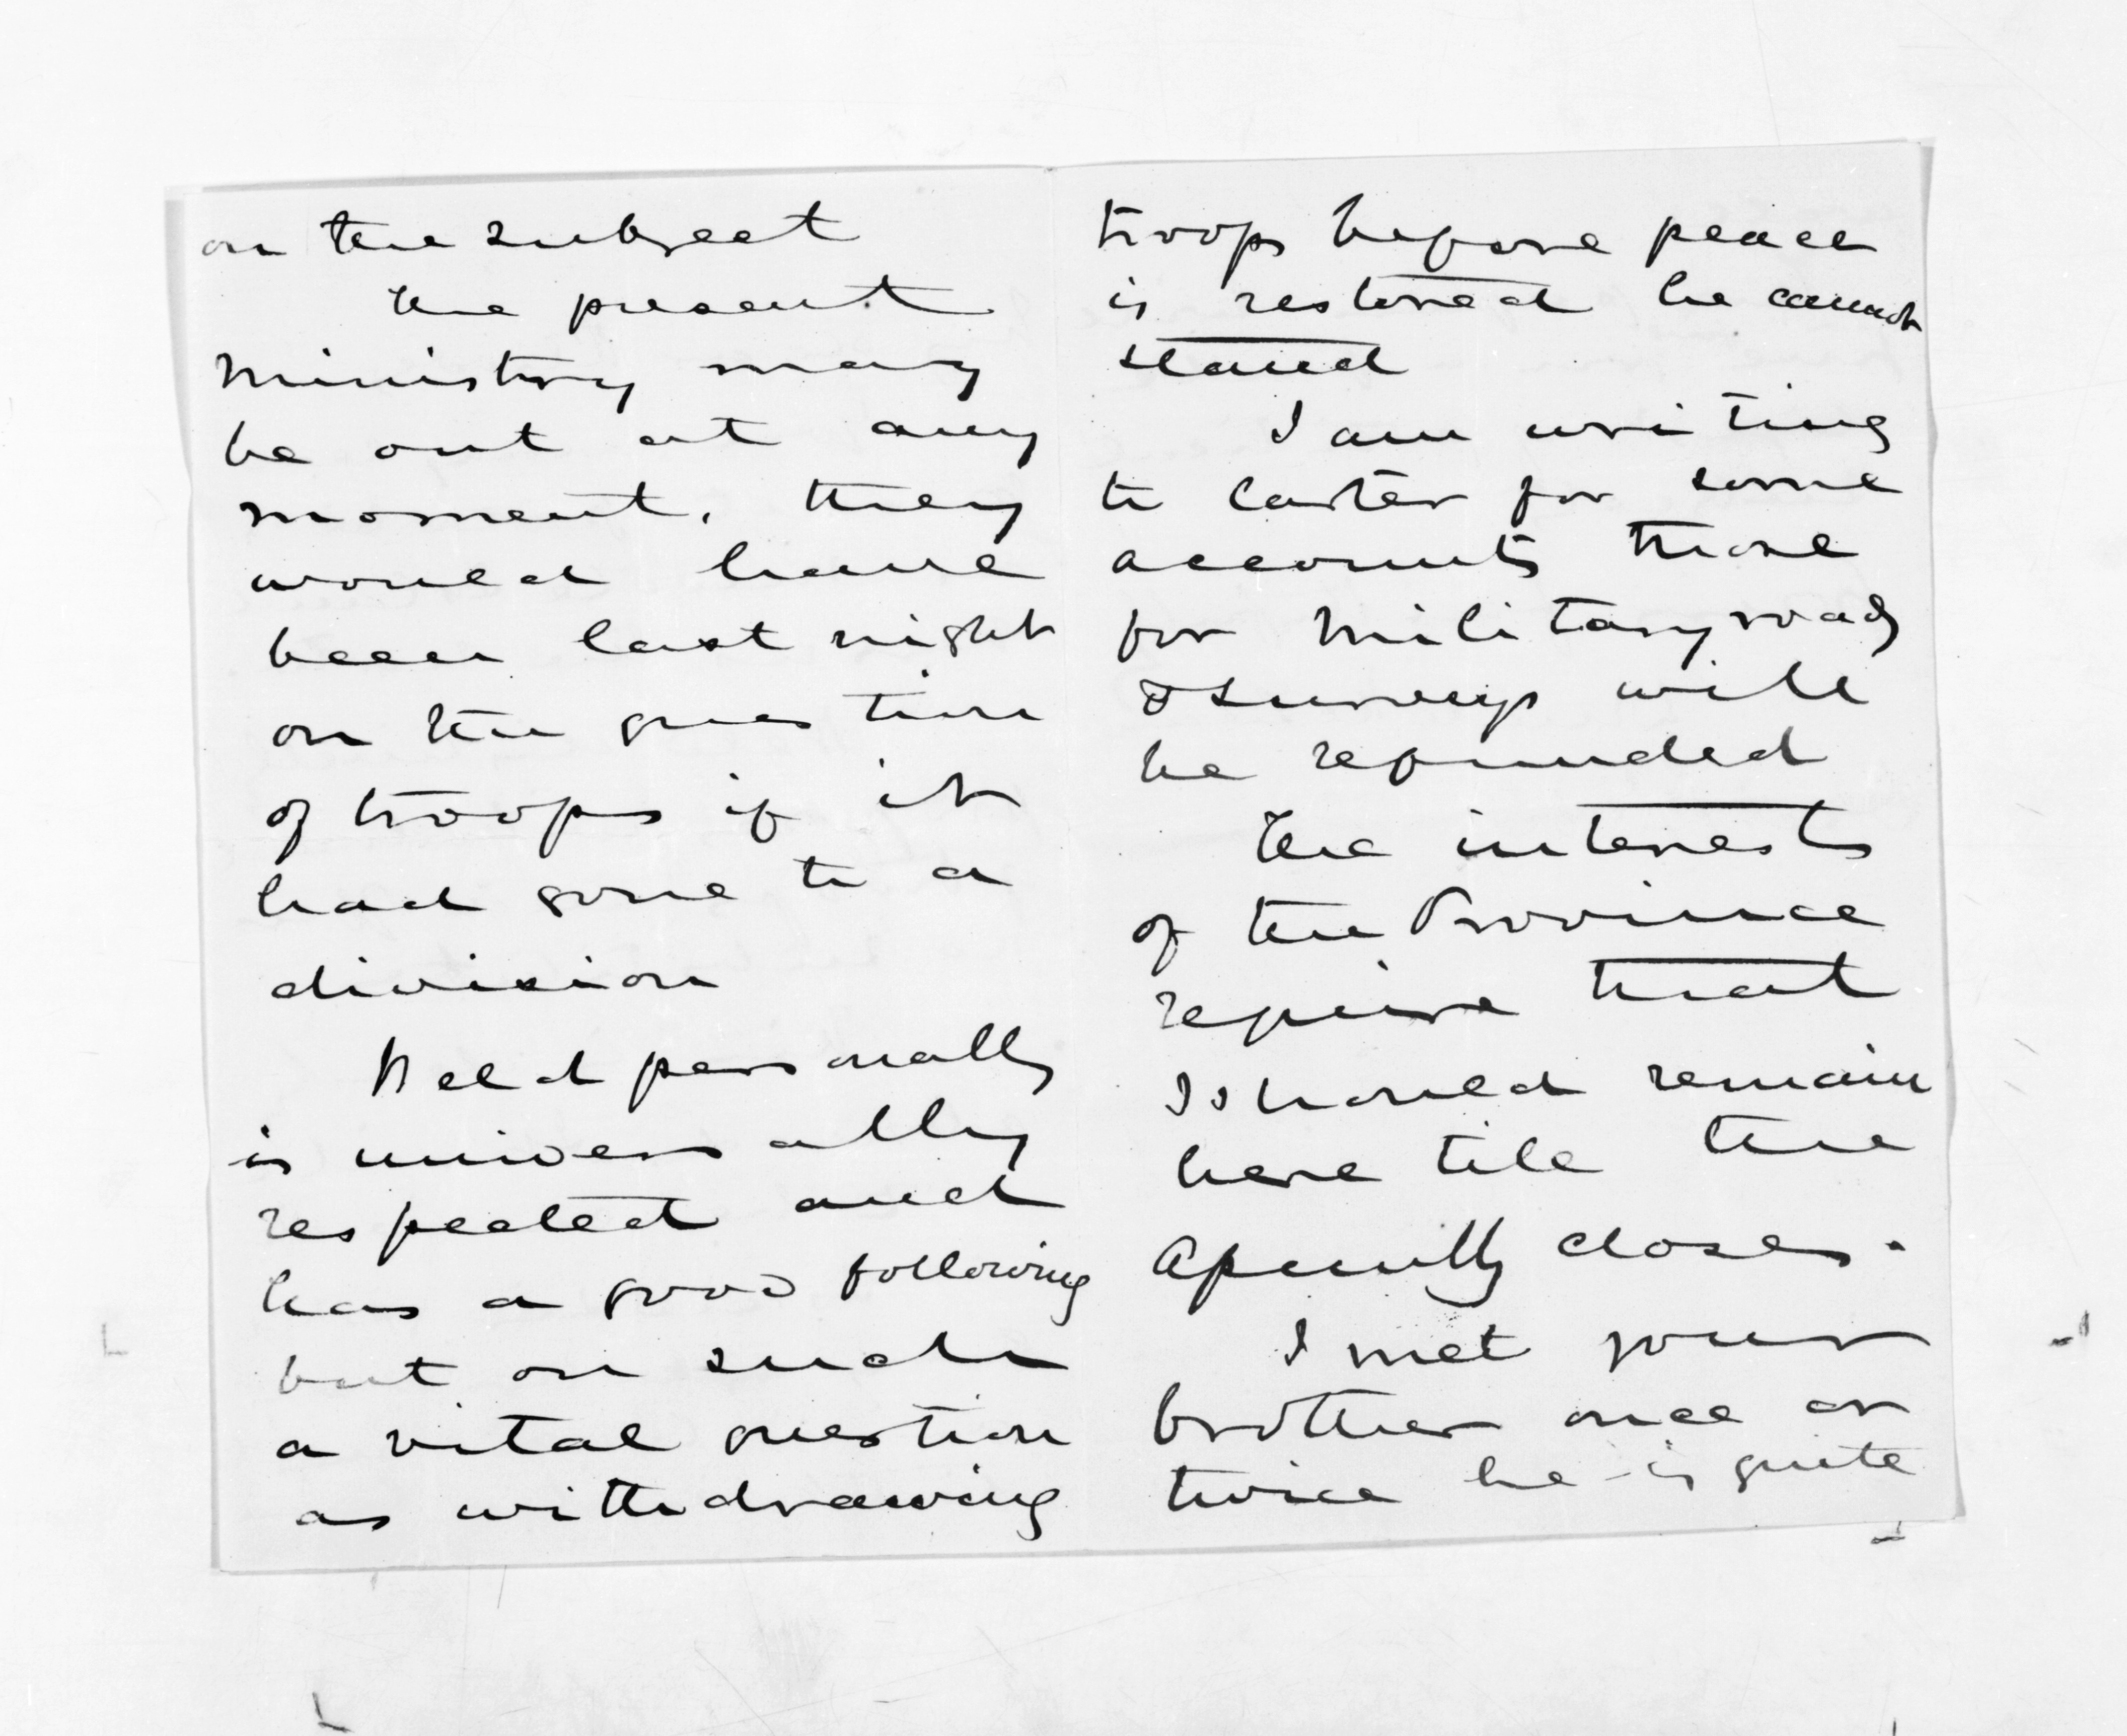 on the subject
The present
Ministry may
be out at any
moment, they
would have
been last night
on the question
of troops if it
had gone to a
division
Weld personally
is universally
respected and
has a good following
but on such
a vital question
as withdrawing
troops before peace
is restored he cannot
stand
I am writing
to Carter for some
accounts those
for Military roads
& surveys will
be refunded
The interests
of the Province
require that
I should remain
here till the
Assembly closes.
I met your
brother once or
twice he is quite